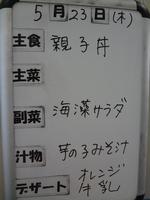 5月23日(木)
主食 親子丼
主菜
副菜 海藻サラダ
汁物 芋の子みそ汁
デザート オレンジ
牛乳